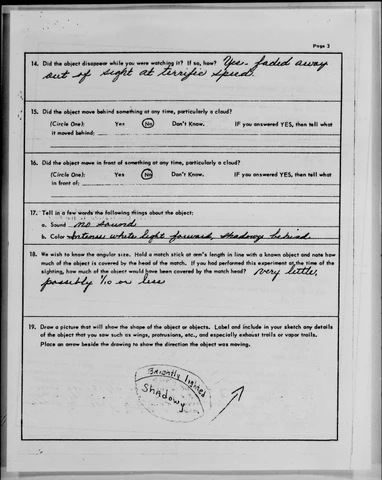 Page 3
14. Did the object disappear while you were watching it? If so, how? Yes - faded away
out of sight at terrific speed.
15. Did the object move behind something at any time, particularly a cloud?
(Circle One): Yes No Don't Know. IF you answered YES, then tell what
it moved behind:
16. Did the object move in front of something at any time, particularly a cloud?
(Circle One): Yes No Don't Know. IF you answered YES, then tell what
in front of:
17. Tell in a few words the following things about the object:
a. Sound no sound
b. Color Intense white light forward, shadowy behind
18. We wish to know the angular size. Hold a match stick at arm's length in line with a known object and note how
much of the object is covered by the head of the match. If you had performed this experiment at the time of the
sighting, how much of the object would have been covered by the match head? Very little,
possibly 1/10 or less
19. Draw a picture that will show the shape of the object or objects. Label and include in your sketch any details
of the object that you saw such as wings, protrusions, etc., and especially exhaust trails or vapor trails.
Place an arrow beside the drawing to show the direction the object was moving.
Brightly lighted
Shadowy